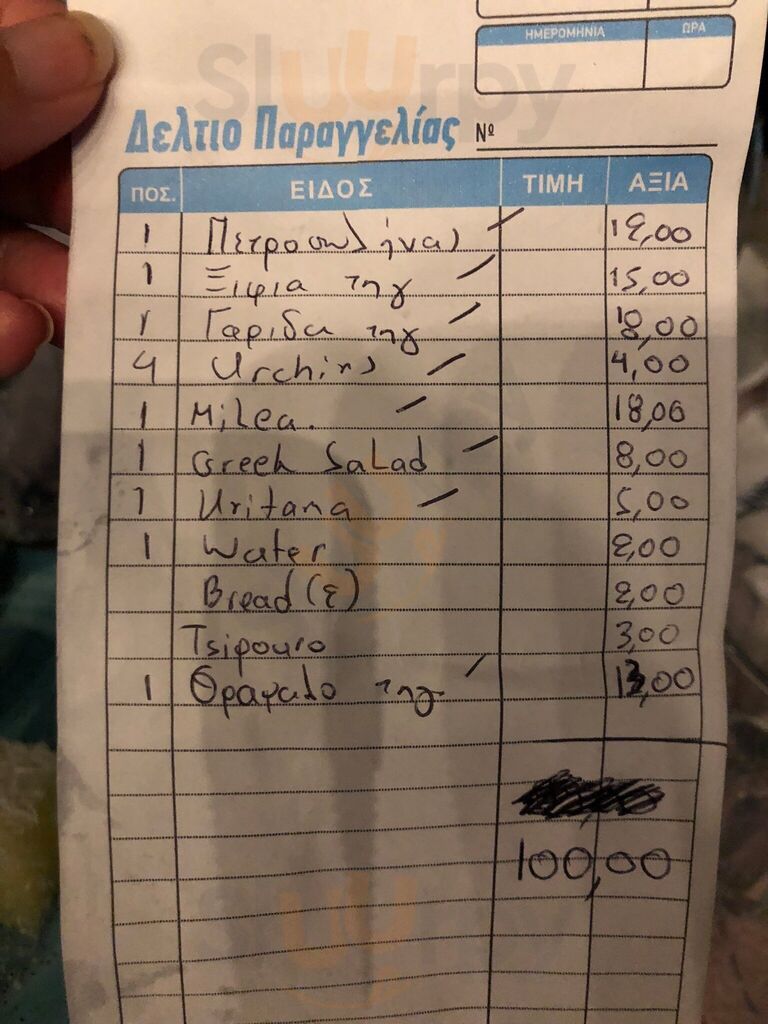 Slurpy
ΗΜΕΡΟΜΗΝΙΑ ΩΡΑ
Δελτιο Παραγγελίας Νº
ΠΟΣ. ΕΙΔΟΣ ΤΙΜΗ ΑΞΙΑ
1 Πετροσωλήνας 12,00
1 Ξιφια τηγ 15,00
1 Γαριδα τηγ 18,00
4 Urchins 4,00
1 Milea. 18,00
1 Greek Salad 8,00
1 Kritama 5,00
1 Water 2,00
Bread (2) 2,00
Tsipouro 3,00
1 Θραψαλο τηγ 13,00
100,00